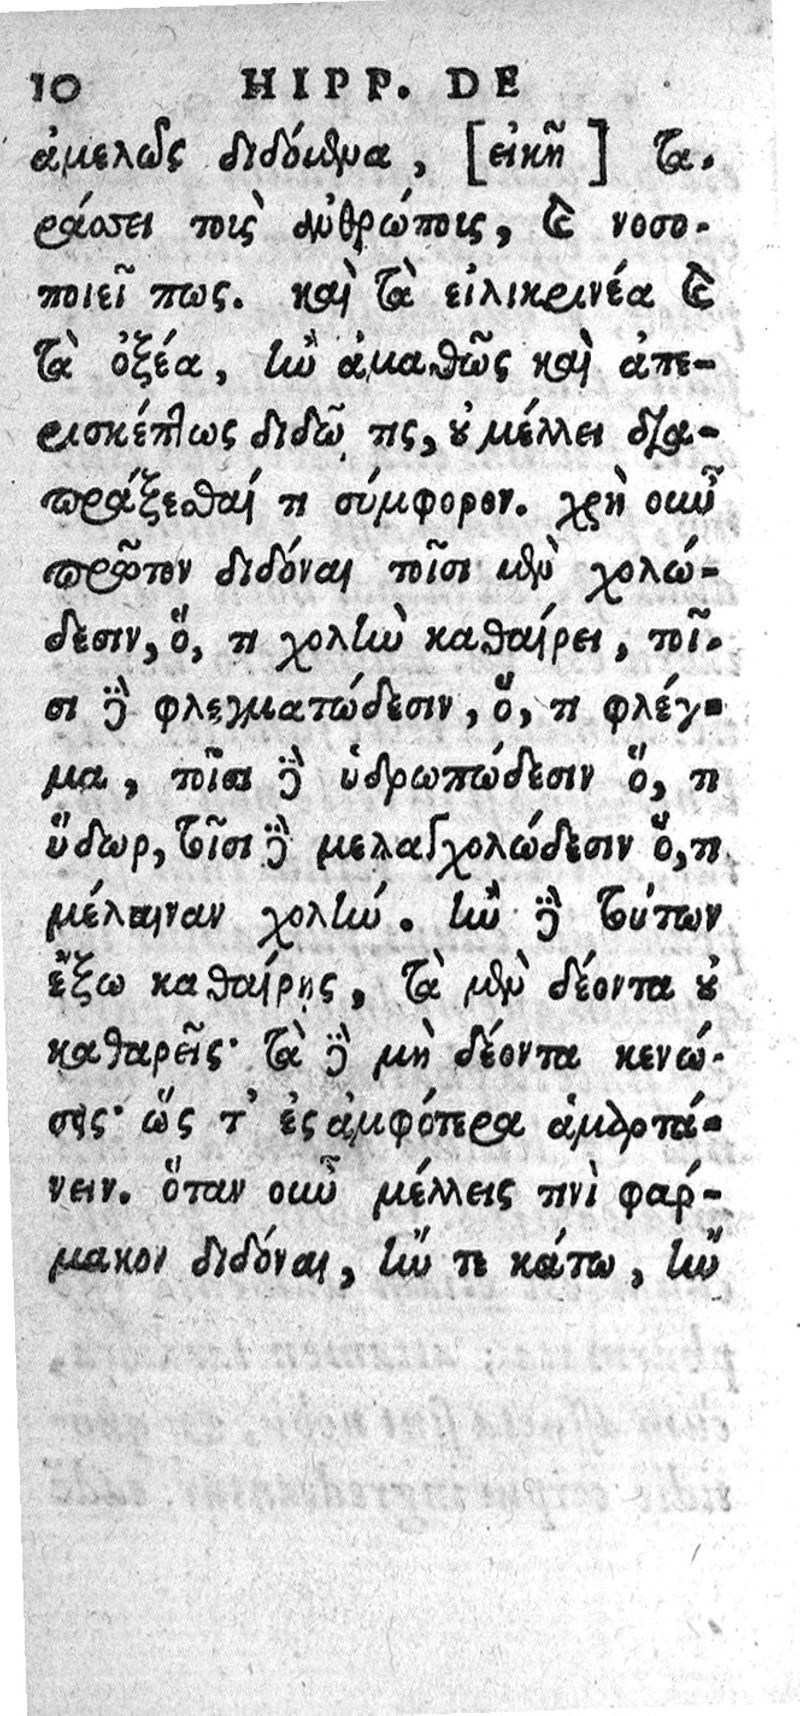 10 HIPP. DE
ἀμελῶς διδόμενα, [εἰκῆ] τα-
ράσσει τοὺς ἀνθρώποις, καὶ νοσο-
ποιεῖ πως. καὶ τὰ εἰλικρινέα καὶ
τὰ ὀξέα, ἢν ἀμαθῶς καὶ ἀπε-
ρισκέπτως διδῷ τις, οὐ μέλλει δια-
πράξεσθαί τι σύμφορον. χρὴ οὖν
πρῶτον διδόναι τοῖσι μὲν χολώ-
δεσιν, ὅ, τι χολὴν καθαίρει, τοῖ-
σι δὲ φλεγματώδεσιν, ὅ, τι φλέγ-
μα, τοῖσι δὲ ὑδρωπώδεσιν ὅ, τι
ὕδωρ, τοῖσι δὲ μελαγχολώδεσιν ὅ, τι
μέλαιναν χολήν. ἢν δὲ τούτων
ἔξω καθαίρῃς, τὰ μὲν δέοντα οὐ
καθαρεῖς· τὰ δὲ μὴ δέοντα κενώ-
σεις· ὥς τ' ἐς ἀμφότερα ἁμαρτά-
νειν. ὅταν οὖν μέλλεις τινὶ φάρ-
μακον διδόναι, ἤν τε κάτω, ἤν